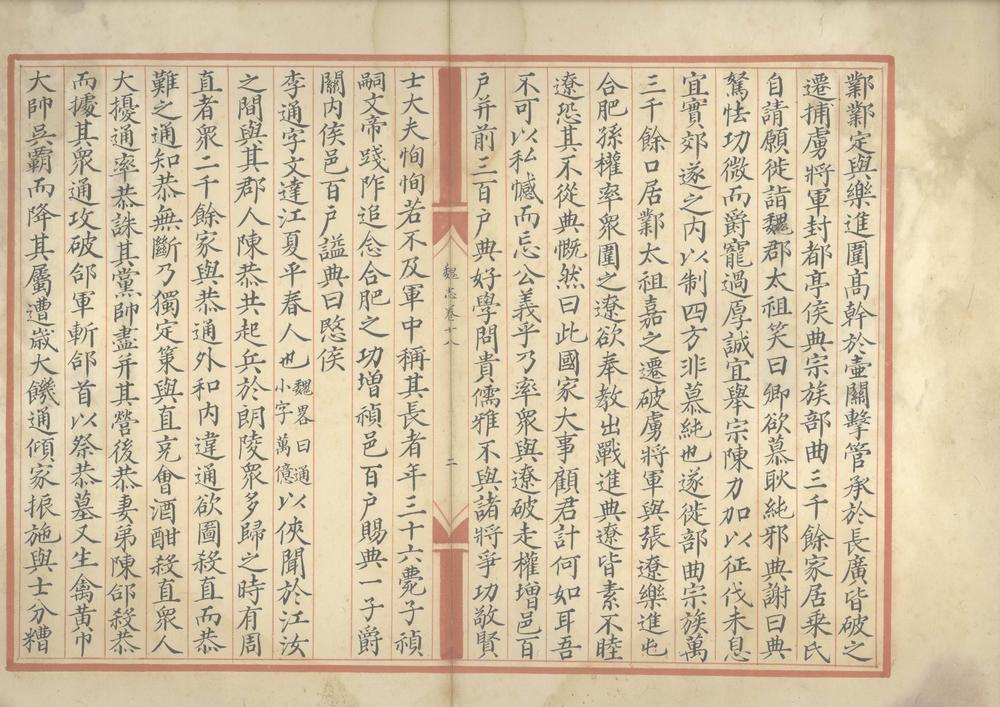 鄴鄴定與樂進圍高幹於壺關擊管承於長廣皆破之
遷捕虜將軍封都亭侯典宗族部曲三千餘家居乘氏
自請願徙詣魏郡太祖笑曰卿欲慕耿純邪典謝曰典
駑怯功微而爵寵過厚誠宜舉宗陳力加以征伐未息
宜實郊遂之內以制四方非慕純也遂徙部曲宗族萬
三千餘口居鄴太祖嘉之遷破虜將軍與張遼樂進屯
合肥孫權率衆圍之遼欲奉教出戰進典遼皆素不睦
遼恐其不從典慨然曰此國家大事顧君計何如耳吾
不可以私憾而忘公義乎乃率衆與遼破走權增邑百
戶并前三百戶典好學問貴儒雅不與諸將爭功敬賢
魏志卷十八
二
士大夫恂恂若不及軍中稱其長者年三十六薨子禎
嗣文帝踐阼追念合肥之功增禎邑百戶賜典一子爵
關內侯邑百戶謚典曰愍侯
李通字文達江夏平春人也魏畧曰通小字萬億以俠聞於江汝
之間與其郡人陳恭共起兵於朗陵衆多歸之時有周
直者衆二千餘家與恭通外和內違通欲圖殺直而恭
難之通知恭無斷乃獨定策與直克會酒酣殺直衆人
大擾通率恭誅其黨帥盡并其營後恭妻弟陳郃殺恭
而據其衆通攻破郃軍斬郃首以祭恭墓又生禽黃巾
大帥吳霸而降其屬遭歲大饑通傾家振施與士分糟